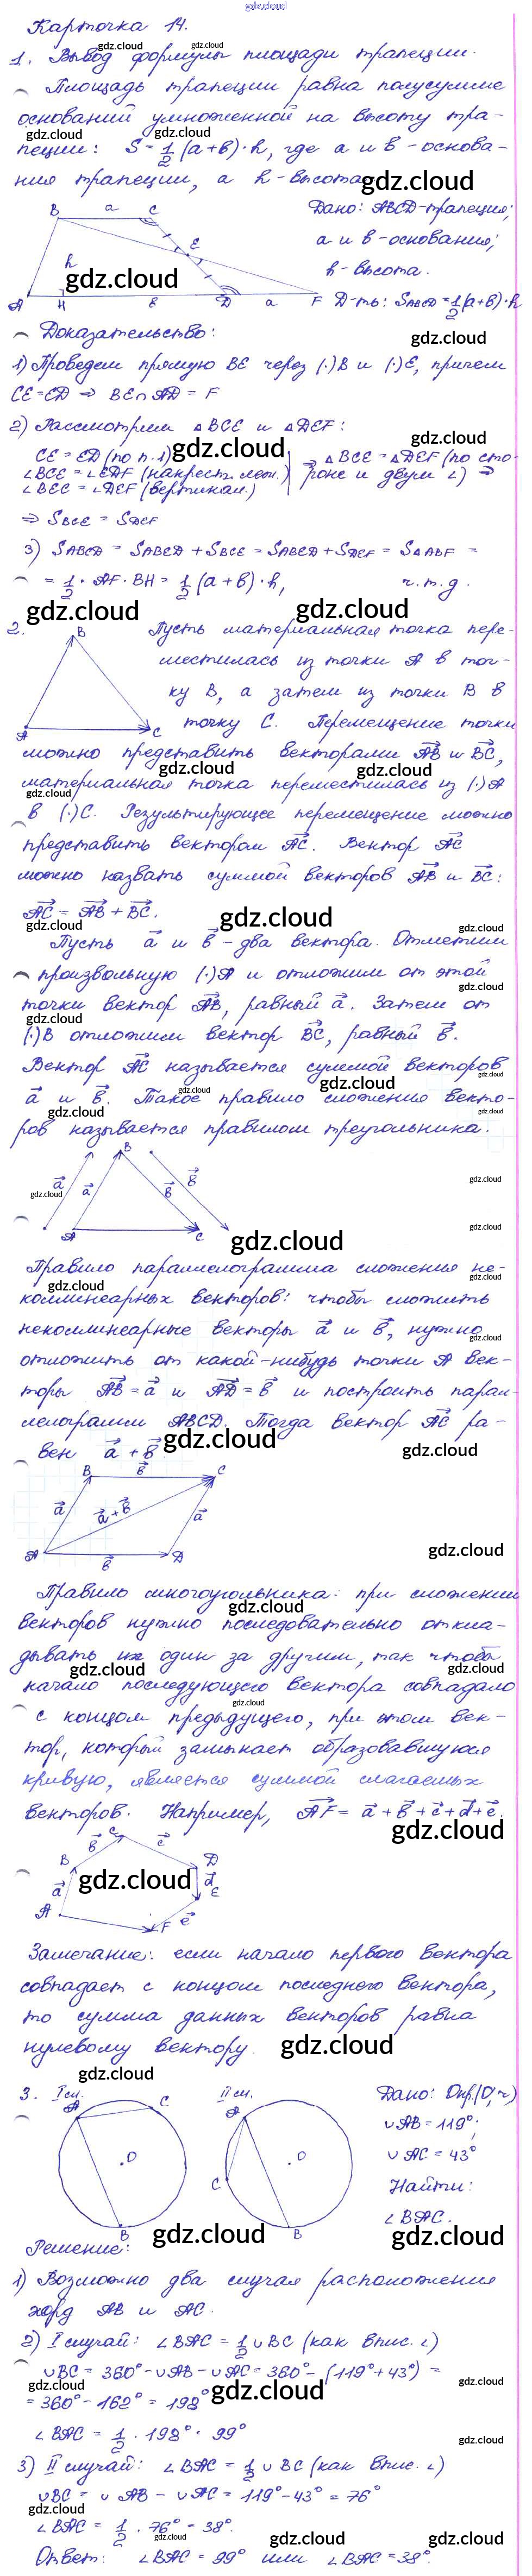 gdz.cloud
Карточка 14.
1. Вывод формулы площади трапеции.
Площадь трапеции равна полусумме
оснований умноженной на высоту тра-
пеции: S = 1/2 (a+b)·h, где a и b - основа-
ния трапеции, а h - высота.
B a C
E
h
A H b D a F
Дано: ABCD - трапеция;
a и b - основания;
h - высота.
Д-ть: SABCD = 1/2 (a+b)·h
Доказательство:
1) Проведем прямую BE через (·)B и (·)E, причем
CE = ED ⇒ BE ∩ AD = F
2) Рассмотрим △BCE и △DEF:
CE = ED (по п.1)
∠BCE = ∠EDF (накрест. леж.)
∠BEC = ∠DEF (вертикал.)
⇒ △BCE = △DEF (по сто-
роне и двум ∠) ⇒
⇒ SBCE = SDEF
3) SABCD = SABED + SBCE = SABED + SDEF = S△ABF =
= 1/2 · AF · BH = 1/2 (a+b)·h, ч.т.д.
2. Пусть материальная точка пере-
местилась из точки A в точ-
ку B, а затем из точки B в
точку C. Перемещение точки
A B C
можно представить векторами AB и BC,
материальная точка переместилась из (·)A
в (·)C. Результирующее перемещение можно
представить вектором AC. Вектор AC
можно назвать суммой векторов AB и BC:
AC = AB + BC.
Пусть a и b - два вектора. Отметим
произвольную (·)A и отложим от этой
точки вектор AB, равный a. Затем от
(·)B отложим вектор BC, равный b.
Вектор AC называется суммой векторов
a и b. Такое правило сложения векто-
ров называется правилом треугольника.
a a B b b
A C
Правило параллелограмма сложения не-
коллинеарных векторов: чтобы сложить
неколлинеарные векторы a и b, нужно
отложить от какой-нибудь точки A век-
торы AB = a и AD = b и построить парал-
лелограмм ABCD. Тогда вектор AC ра-
вен a + b
B b C
a a+b a
A b D
Правило многоугольника: при сложении
векторов нужно последовательно откла-
дывать их один за другим, так чтобы
начало последующего вектора совпадало
с концом предыдущего, при этом век-
тор, который замыкает образовавшуюся
кривую, является суммой слагаемых
векторов. Например, AF = a + b + c + d + e.
B b C c D
a d
A F e E
Замечание: если начало первого вектора
совпадает с концом последнего вектора,
то сумма данных векторов равна
нулевому вектору.
3. I сл. II сл.
A C O B
A C O B
Дано: Окр.(O; r)
∪AB = 119°;
∪AC = 43°
Найти:
∠BAC.
Решение:
1) Возможно два случая расположения
хорд AB и AC.
2) I случай: ∠BAC = 1/2 ∪BC (как впис. ∠)
∪BC = 360° - ∪AB - ∪AC = 360° - (119° + 43°) =
= 360° - 162° = 198°
∠BAC = 1/2 · 198° = 99°
3) II случай: ∠BAC = 1/2 ∪BC (как впис. ∠)
∪BC = ∪AB - ∪AC = 119° - 43° = 76°
∠BAC = 1/2 · 76° = 38°.
Ответ: ∠BAC = 99° или ∠BAC = 38°.